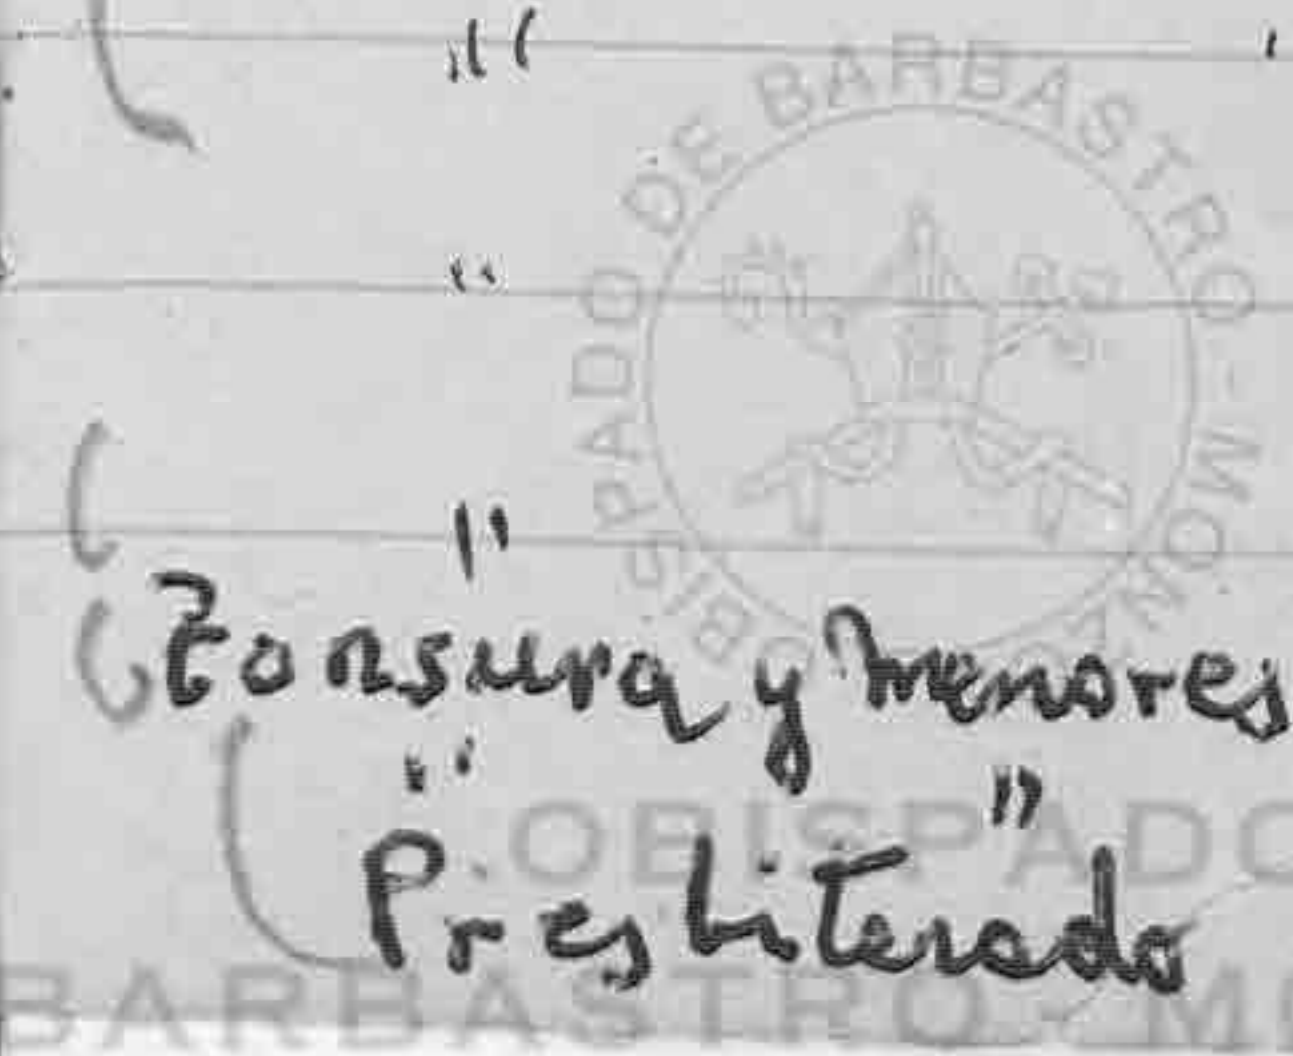 "
"
"
Tonsura y menores
" "
Presbiterado
OBISPADO DE BARBASTRO - MON
OBISPADO
BARBASTRO - M